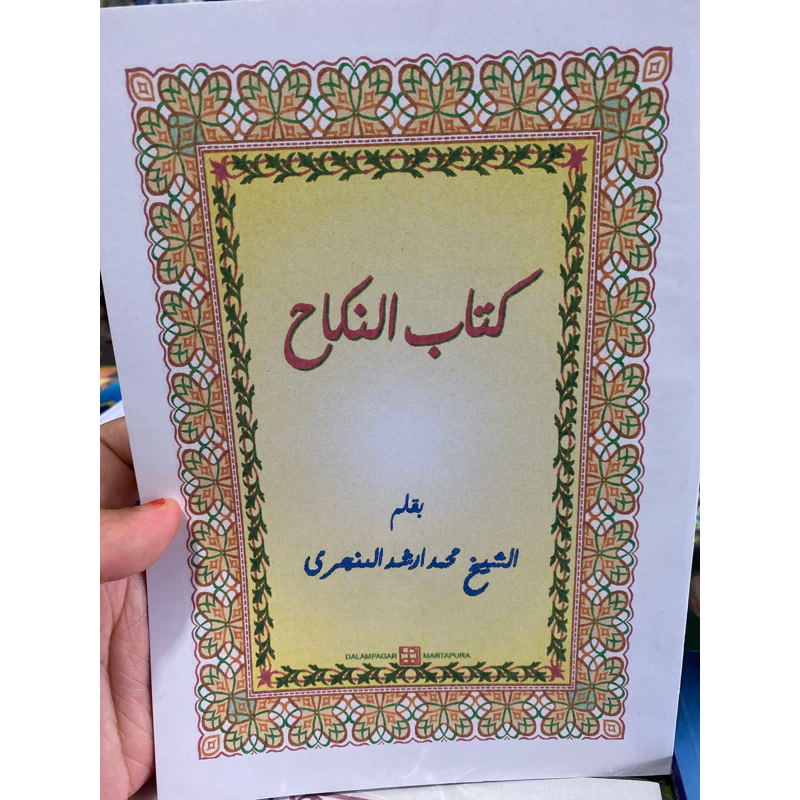 كتاب النكاح
بقلم
الشيخ محمد ارشد البنجرى
DALAMPAGAR MARTAPURA